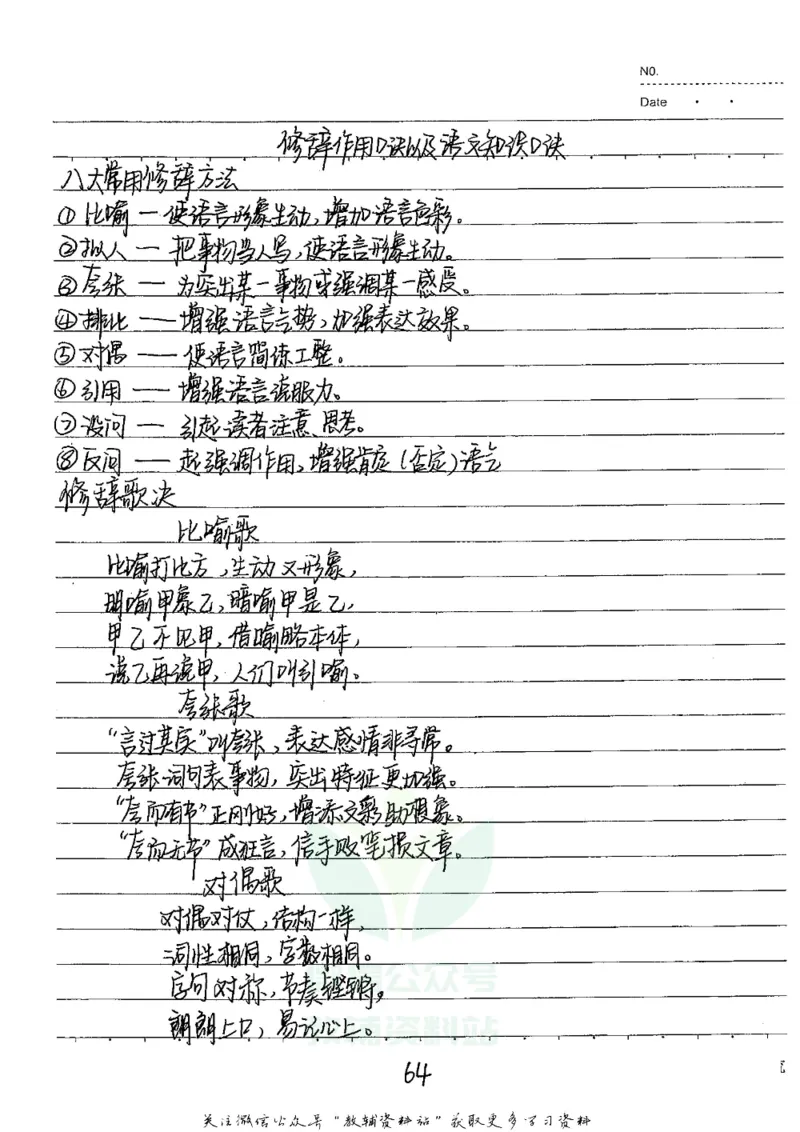 NO.
Date
修辞作用口诀以及语文知识口诀
八大常用修辞方法
①比喻 — 使语言形象生动,增加语言色彩。
②拟人 — 把事物当人写,使语言形象生动。
③夸张 — 为突出某一事物或强调某一感受。
④排比 — 增强语言气势,加强表达效果。
⑤对偶 — 使语言简练工整。
⑥引用 — 增强语言说服力。
⑦设问 — 引起读者注意、思考。
⑧反问 — 起强调作用,增强肯定(否定)语气
修辞歌决
比喻歌
比喻打比方,生动又形象,
明喻甲象乙,暗喻甲是乙,
甲乙不见甲,借喻略本体,
说乙再说甲,人们叫引喻。
夸张歌
“言过其实”叫夸张,表达感情非寻常。
夸张词句表事物,突出特征更加强。
“夸而有节”正刚好,增添文彩助想象。
“夸而无节”成狂言,信手败笔损文章。
对偶歌
对偶对仗,结构一样,
词性相同,字数相同。
字句对称,节奏铿锵,
朗朗上口,易记心上。
微信公众号
教辅资料站
64
关注微信公众号“教辅资料站”获取更多学习资料